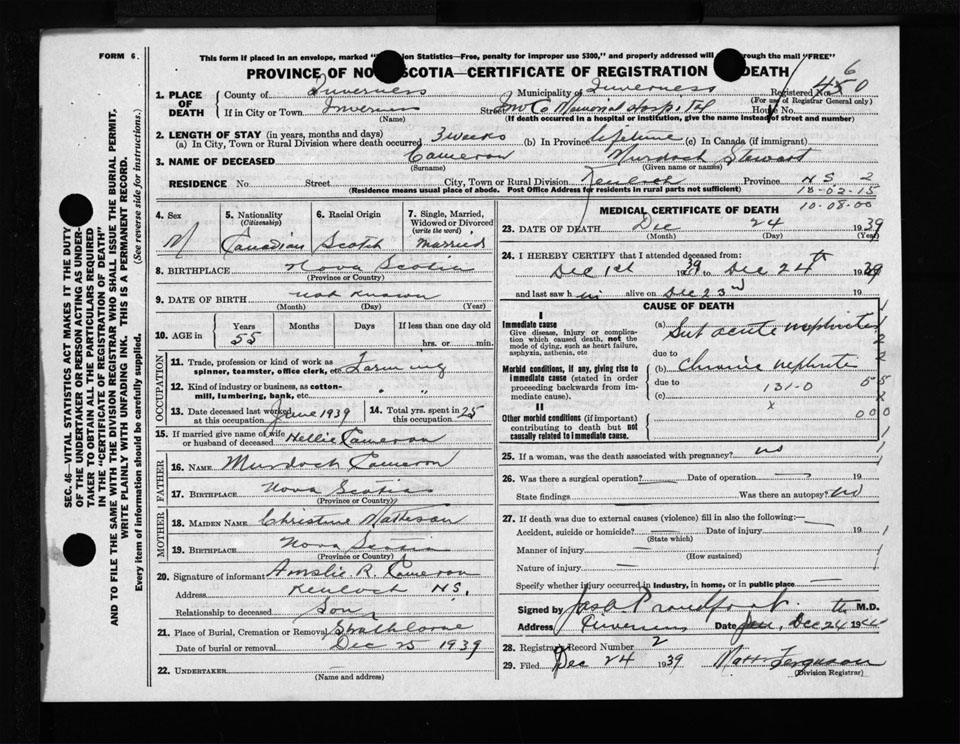 FORM 6.
This form if placed in an envelope, marked " on Statistics—Free, penalty for improper use $300," and properly addressed will rough the mail "FREE"
PROVINCE OF NO SCOTIA—CERTIFICATE OF REGISTRATION DEATH
1. PLACE OF DEATH County of Inverness Municipality of Inverness Registered No. 450 6
(For use of Registrar General only)
If in City or Town Inverness (Name) Street Inv Co Memorial Hospital House No.
(If death occurred in a hospital or institution, give the name instead of street and number)
2. LENGTH OF STAY (in years, months and days)
(a) In City, Town or Rural Division where death occurred 3 weeks (b) In Province lifetime (c) In Canada (if immigrant)
3. NAME OF DECEASED Cameron Murdoch Stewart
(Surname) (Given name or names)
RESIDENCE No. Street City, Town or Rural Division Kenloch Province N S 2
(Residence means usual place of abode. Post Office Address for residents in rural parts not sufficient) 18-03-15
10-08-00
SEC. 46—VITAL STATISTICS ACT MAKES IT THE DUTY OF THE UNDERTAKER OR PERSON ACTING AS UNDERTAKER TO OBTAIN ALL THE PARTICULARS REQUIRED IN THE "CERTIFICATE OF REGISTRATION OF DEATH" AND TO FILE THE SAME WITH THE DIVISION REGISTRAR WHO SHALL ISSUE THE BURIAL PERMIT.
(See reverse side for instructions.)
WRITE PLAINLY WITH UNFADING INK. THIS IS A PERMANENT RECORD.
Every item of information should be carefully supplied.
4. Sex M
5. Nationality (Citizenship) Canadian
6. Racial Origin Scotch
7. Single, Married, Widowed or Divorced (write the word) Married
8. BIRTHPLACE Nova Scotia
(Province or Country)
9. DATE OF BIRTH not known
(Month) (Day) (Year)
10. AGE in Years 55 Months Days If less than one day old hrs. or min.
OCCUPATION
11. Trade, profession or kind of work as spinner, teamster, office clerk, etc. Farming
12. Kind of industry or business, as cotton-mill, lumbering, bank, etc. " "
13. Date deceased last worked at this occupation June 1939
14. Total yrs. spent in this occupation 25
15. If married give name of wife or husband of deceased Nellie Cameron
FATHER
16. NAME Murdoch Cameron
17. BIRTHPLACE Nova Scotia
(Province or Country)
MOTHER
18. MAIDEN NAME Christine Matheson
19. BIRTHPLACE Nova Scotia
(Province or Country)
20. Signature of informant R. Cameron
Address Kenloch N.S.
Relationship to deceased Son
21. Place of Burial, Cremation or Removal Strathlorne
Date of burial or removal Dec 25 1939
22. UNDERTAKER —
(Name and address)
MEDICAL CERTIFICATE OF DEATH
23. DATE OF DEATH Dec 24 1939
(Month) (Day) (Year)
24. I HEREBY CERTIFY that I attended deceased from:
Dec 1st 1939 to Dec 24th 1939
and last saw him alive on Dec 23rd 19
CAUSE OF DEATH
I
Immediate cause
Give disease, injury or complication which caused death, not the mode of dying, such as heart failure, asphyxia, asthenia, etc
(a) Sub acute nephritis
due to
Morbid conditions, if any, giving rise to immediate cause (stated in order proceeding backwards from immediate cause).
(b) Chronic nephritis
due to 131-0 55
(c) x
II
Other morbid conditions (if important) contributing to death but not causally related to immediate cause.
000
25. If a woman, was the death associated with pregnancy? no
26. Was there a surgical operation? — Date of operation — 19
State findings Was there an autopsy? no
27. If death was due to external causes (violence) fill in also the following:—
Accident, suicide or homicide? — Date of injury 19
(State which)
Manner of injury —
(How sustained)
Nature of injury —
Specify whether injury occurred in industry, in home, or in public place —
Signed by Jas A Proudfoot M.D.
Address Inverness Date Dec 24th 19
28. Registrar's Record Number 2
29. Filed Dec 24 1939 Ferguson
(Division Registrar)